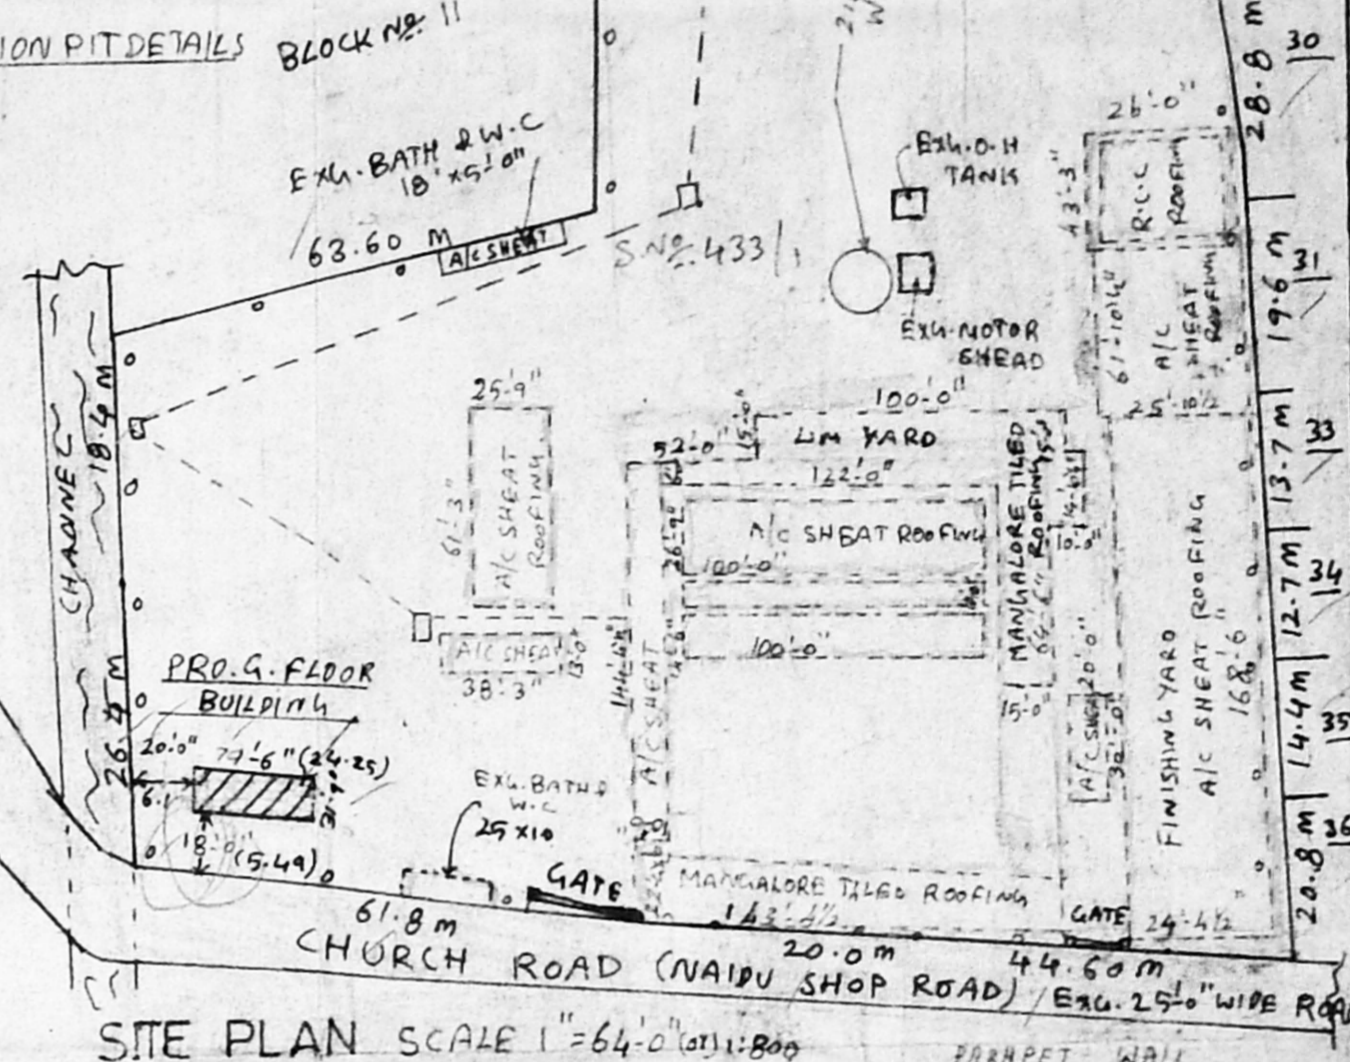 ION PIT DETAILS
BLOCK No. 11
EXG. BATH & W.C
18' x 5'-0"
63.60 M
A/C SHEAT
S.No. 433/1
EXG. O.H
TANK
EXG. MOTOR
SHEAD
26'-0"
43'-3"
R.C.C
ROOFING
61'-10½"
A/C
SHEAT
ROOFING
28.8 M
30
19.6 M
31
13.7 M
33
12.7 M
34
14.4 M
35
20.8 M
36
CHANNEL
18.4 M
26.4 M
25'-9"
61'-3"
A/C SHEAT
ROOFING
A/C SHEAT
13'-0"
38'-3"
52'-0"
15'-0"
100'-0"
LIM YARD
122'-0"
26'-9"
A/C SHEAT ROOFING
100'-0"
100'-0"
MANGALORE TILED
ROOFING
15'-0"
10'-0"
A/C SHEAT
20'-0"
A/C SHEAT
FINISHING YARD
A/C SHEAT ROOFING
168'-6"
PRO. G. FLOOR
BUILDING
20'-0"
6.1
79'-6" (24.25)
18'-0" (5.49)
EXG. BATH &
W.C
25 x 10
GATE
MANGALORE TILED ROOFING
143'-4½"
GATE
24'-4½"
61.8 m
20.0 m
44.60 m
CHURCH ROAD (NAIDU SHOP ROAD)
EXG. 25'-0" WIDE ROA
SITE PLAN SCALE 1"=64'-0" (or) 1:800
PARAPET WALL